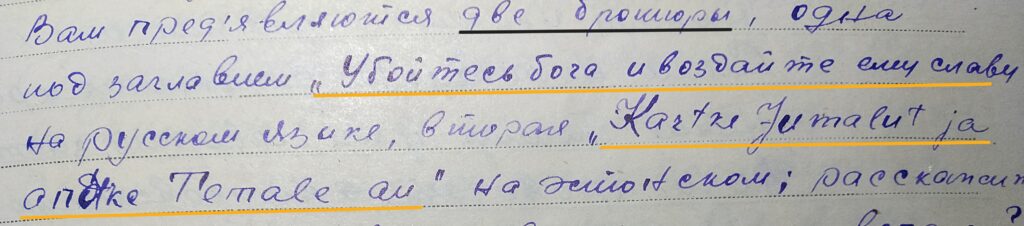 Вам пред'являются две брошюры, одна
под заглавием „Убойтесь бога и воздайте ему славу
на русском языке, вторая „Kartke Jumalut ja
andke Temale au" на эстонском; расскажит
?